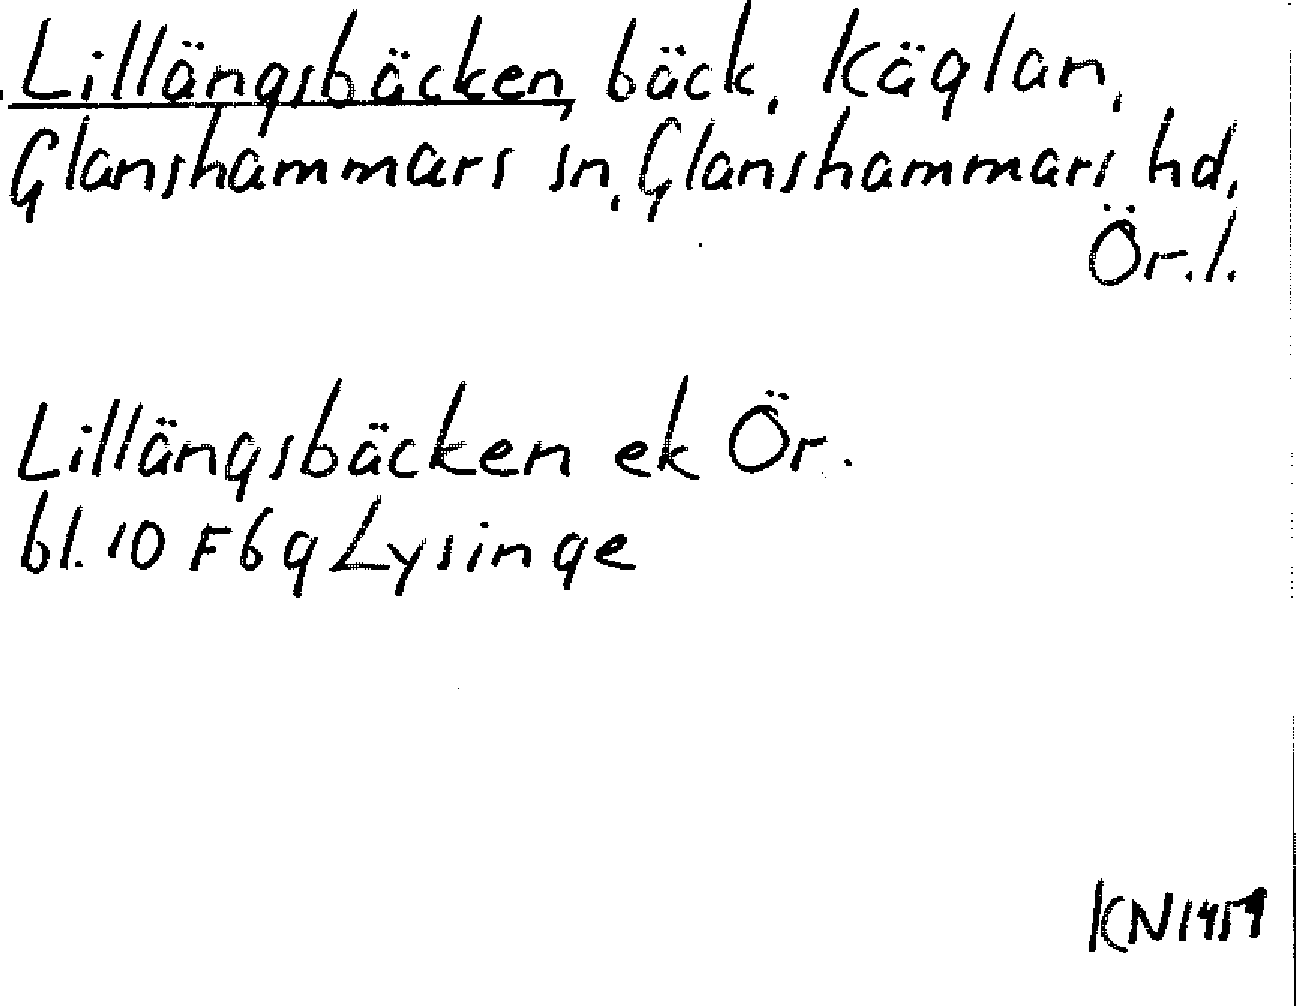 Lillängsbäcken, bäck, Käglan,
Glanshammars sn, Glanshammars hd,
Ör.l.
Lillängsbäcken ek Ör.
bl. 10 F6g Lysinge